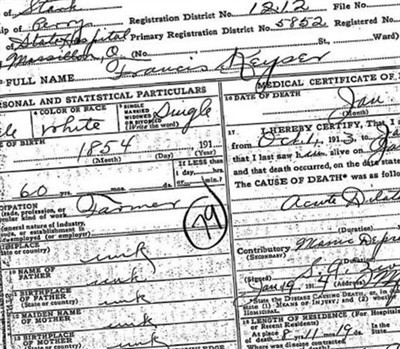 Stark
ship of Perry Registration District No. 1212 File No.
State Hospital Primary Registration District No. 5852 Registered No.
Massillon, O. (No. St., Ward)
FULL NAME Francis Keyser
PERSONAL AND STATISTICAL PARTICULARS
MEDICAL CERTIFICATE OF
COLOR OR RACE
White
SINGLE
MARRIED
WIDOWED
OR DIVORCED
(Write the word)
Single
OF BIRTH
1854 191
(Month) (Day) (Year)
60 yrs. mos. da.
IF LESS than
1 day, hrs.
or min.?
OCCUPATION
(a) Trade, profession, or
particular kind of work
Farmer
(b) General nature of industry,
business, or establishment in
which employed (or employer)
79
(State or country) unk
10 NAME OF
FATHER unk
11 BIRTHPLACE
OF FATHER
(State or country) unk
12 MAIDEN NAME
OF MOTHER unk
13 BIRTHPLACE
OF MOTHER unk
16 DATE OF DEATH
Jan
(Month)
17 I HEREBY CERTIFY, That I
from Oct 1, 1913, to Jan
that I last saw him alive on
and that death occurred, on the date state
The CAUSE OF DEATH* was as follow
Acute Dilata
(Duration)
Contributory Manic Depr
(SECONDARY)
(Duration)
(Signed) S. G.
Jan 19, 191 (Address)
*State the DISEASE CAUSING DEATH, or, in d
state (1) MEANS OF INJURY; and (2) wheth
HOMICIDAL.
18 LENGTH OF RESIDENCE (For Hospitals
or Recent Residents)
At place
of death yrs. 11 mos. 19 ds.
Where was disease contracted